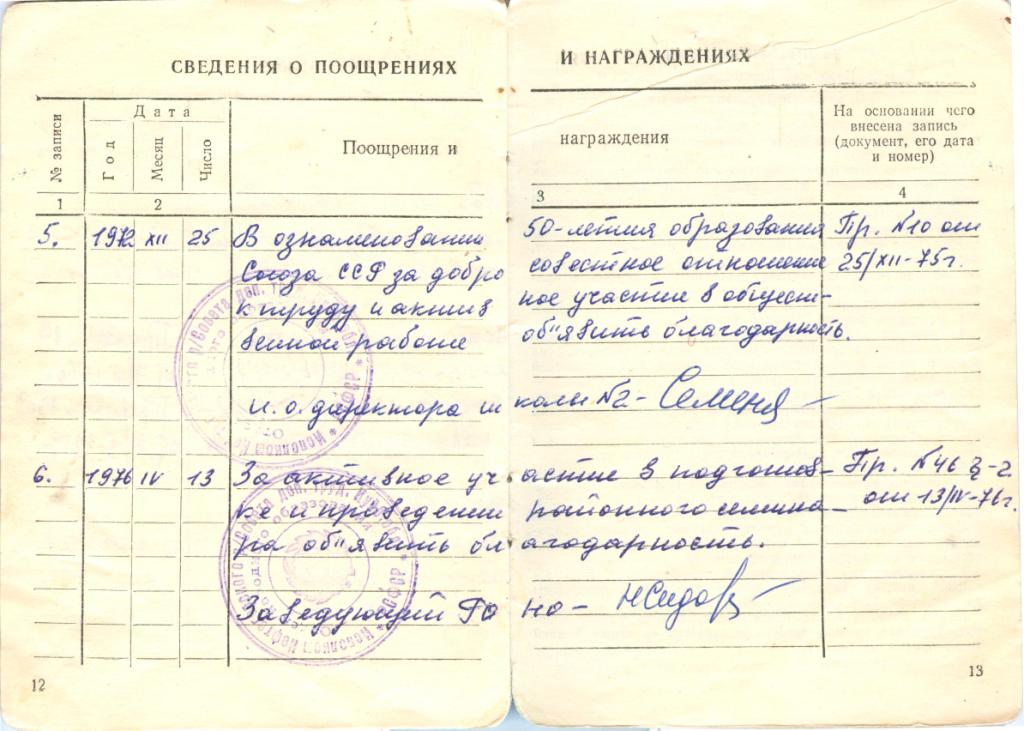 СВЕДЕНИЯ О ПООЩРЕНИЯХ И НАГРАЖДЕНИЯХ
№ записи
Дата
Год
Месяц
Число
Поощрения и награждения
На основании чего
внесена запись
(документ, его дата
и номер)
1 2 3 4
5. 1972 XII 25 В ознаменовании 50-летия образования Пр. №10 от
Союза ССР за добро совестное отношение 25/XII-75г.
к труду и актив ное участие в общест-
венной работе объявить благодарность.
И.о. директора ш колы №2 - Семеня
6. 1976 IV 13 За активное уч астие в подготов- Пр. №46 §-2
ке и проведении районного семина- от 13/IV-76г.
ра объявить бл агодарность.
Заведующий РО НО - НСидор
12 13